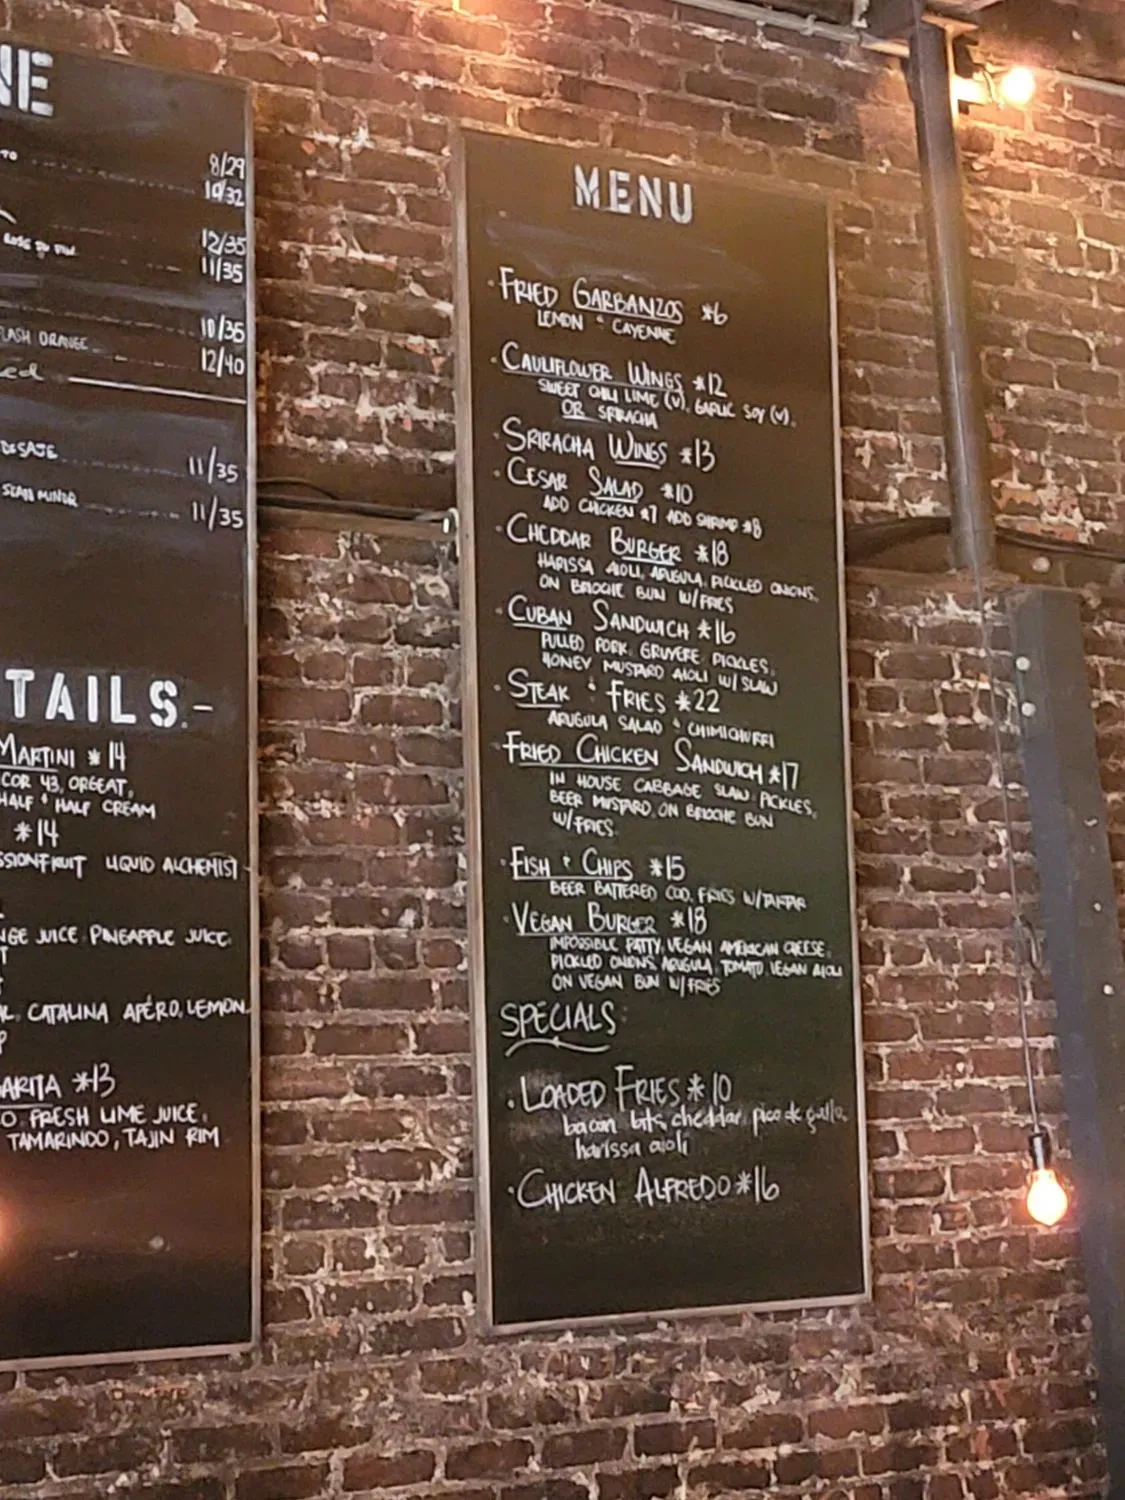 NE
8/29
10/32
12/35
11/35
10/35
ORANGE
12/40
ed
11/35
11/35
TAILS.-
MARTINI $14
43, ORGEAT,
HALF & HALF CREAM
$14
LIQUID ALCHEMIST
JUICE PINEAPPLE JUICE
CATALINA APÉRO, LEMON
ARITA $13
O FRESH LIME JUICE,
TAMARINDO, TAJIN RIM
MENU
FRIED GARBANZOS $6
LEMON & CAYENNE
CAULIFLOWER WINGS $12
SWEET CHILI LIME (V), GARLIC SOY (V),
OR SRIRACHA
SRIRACHA WINGS $13
CESAR SALAD $10
ADD CHICKEN $7 ADD SHRIMP $8
CHEDDAR BURGER $18
HARISSA AIOLI, ARUGULA, PICKLED ONIONS,
ON BRIOCHE BUN W/FRIES
CUBAN SANDWICH $16
PULLED PORK, GRUYERE, PICKLES,
HONEY MUSTARD AIOLI W/ SLAW
STEAK & FRIES $22
ARUGULA SALAD & CHIMICHURRI
FRIED CHICKEN SANDWICH $17
IN HOUSE CABBAGE SLAW, PICKLES,
BEER MUSTARD, ON BRIOCHE BUN
W/FRIES.
FISH & CHIPS $15
BEER BATTERED COD, FRIES W/TARTAR
VEGAN BURGER $18
IMPOSSIBLE PATTY, VEGAN AMERICAN CHEESE,
PICKLED ONIONS, ARUGULA, TOMATO, VEGAN AIOLI
ON VEGAN BUN W/FRIES
SPECIALS
LOADED FRIES $10
bacon bits, cheddar, pico de gallo,
harissa aioli
CHICKEN ALFREDO $16